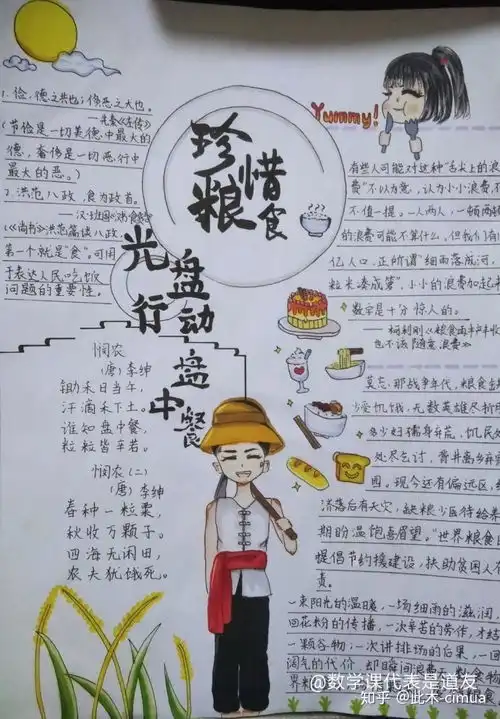 珍惜
粮食
光盘
行动
盘
中餐
1. 俭,德之共也;侈,恶之大也。
——先秦《左传》
(节俭是一切美德中最大的
德,奢侈是一切恶行中
最大的恶。)
2. 洪范八政,食为政首。
第一个就是"食",可用
于表达人民吃饭
问题的重要性。
悯农
(唐)李绅
锄禾日当午,
汗滴禾下土。
谁知盘中餐,
粒粒皆辛苦。
悯农(二)
(唐)李绅
春种一粒粟,
秋收万颗子。
四海无闲田,
农夫犹饿死。
Yummy!
有些人可能对这种"舌尖上的浪
费"不以为意,认为小小浪费,
不值一提。一人两人,一顿两顿
的浪费可能不算什么,但我们有
亿人口,正所谓"细雨落成河,
粒米凑成箩",小小的浪费加起来
数字是十分惊人的。
也不该随意浪费》
莫忘,那战争年代,粮食
少受饥饿,无数英雄尽折
多少妇孺身弃荒,饥民
处尽乞讨,背井离乡
困。现今还有偏远区,
洪落后有天灾,缺粮少医待给
期盼温饱喜眉望。"世界粮食日
提倡节约援建设,扶助贫困人
责。
一束阳光的温暖,一场细雨的滋润,
回花粉的传播,一次辛苦的劳作,才
一颗谷物;一次讲排场的后果,一回
阔气的代价,却瞬间浪费
@数学课代表是道友
知乎 @此木-cimua